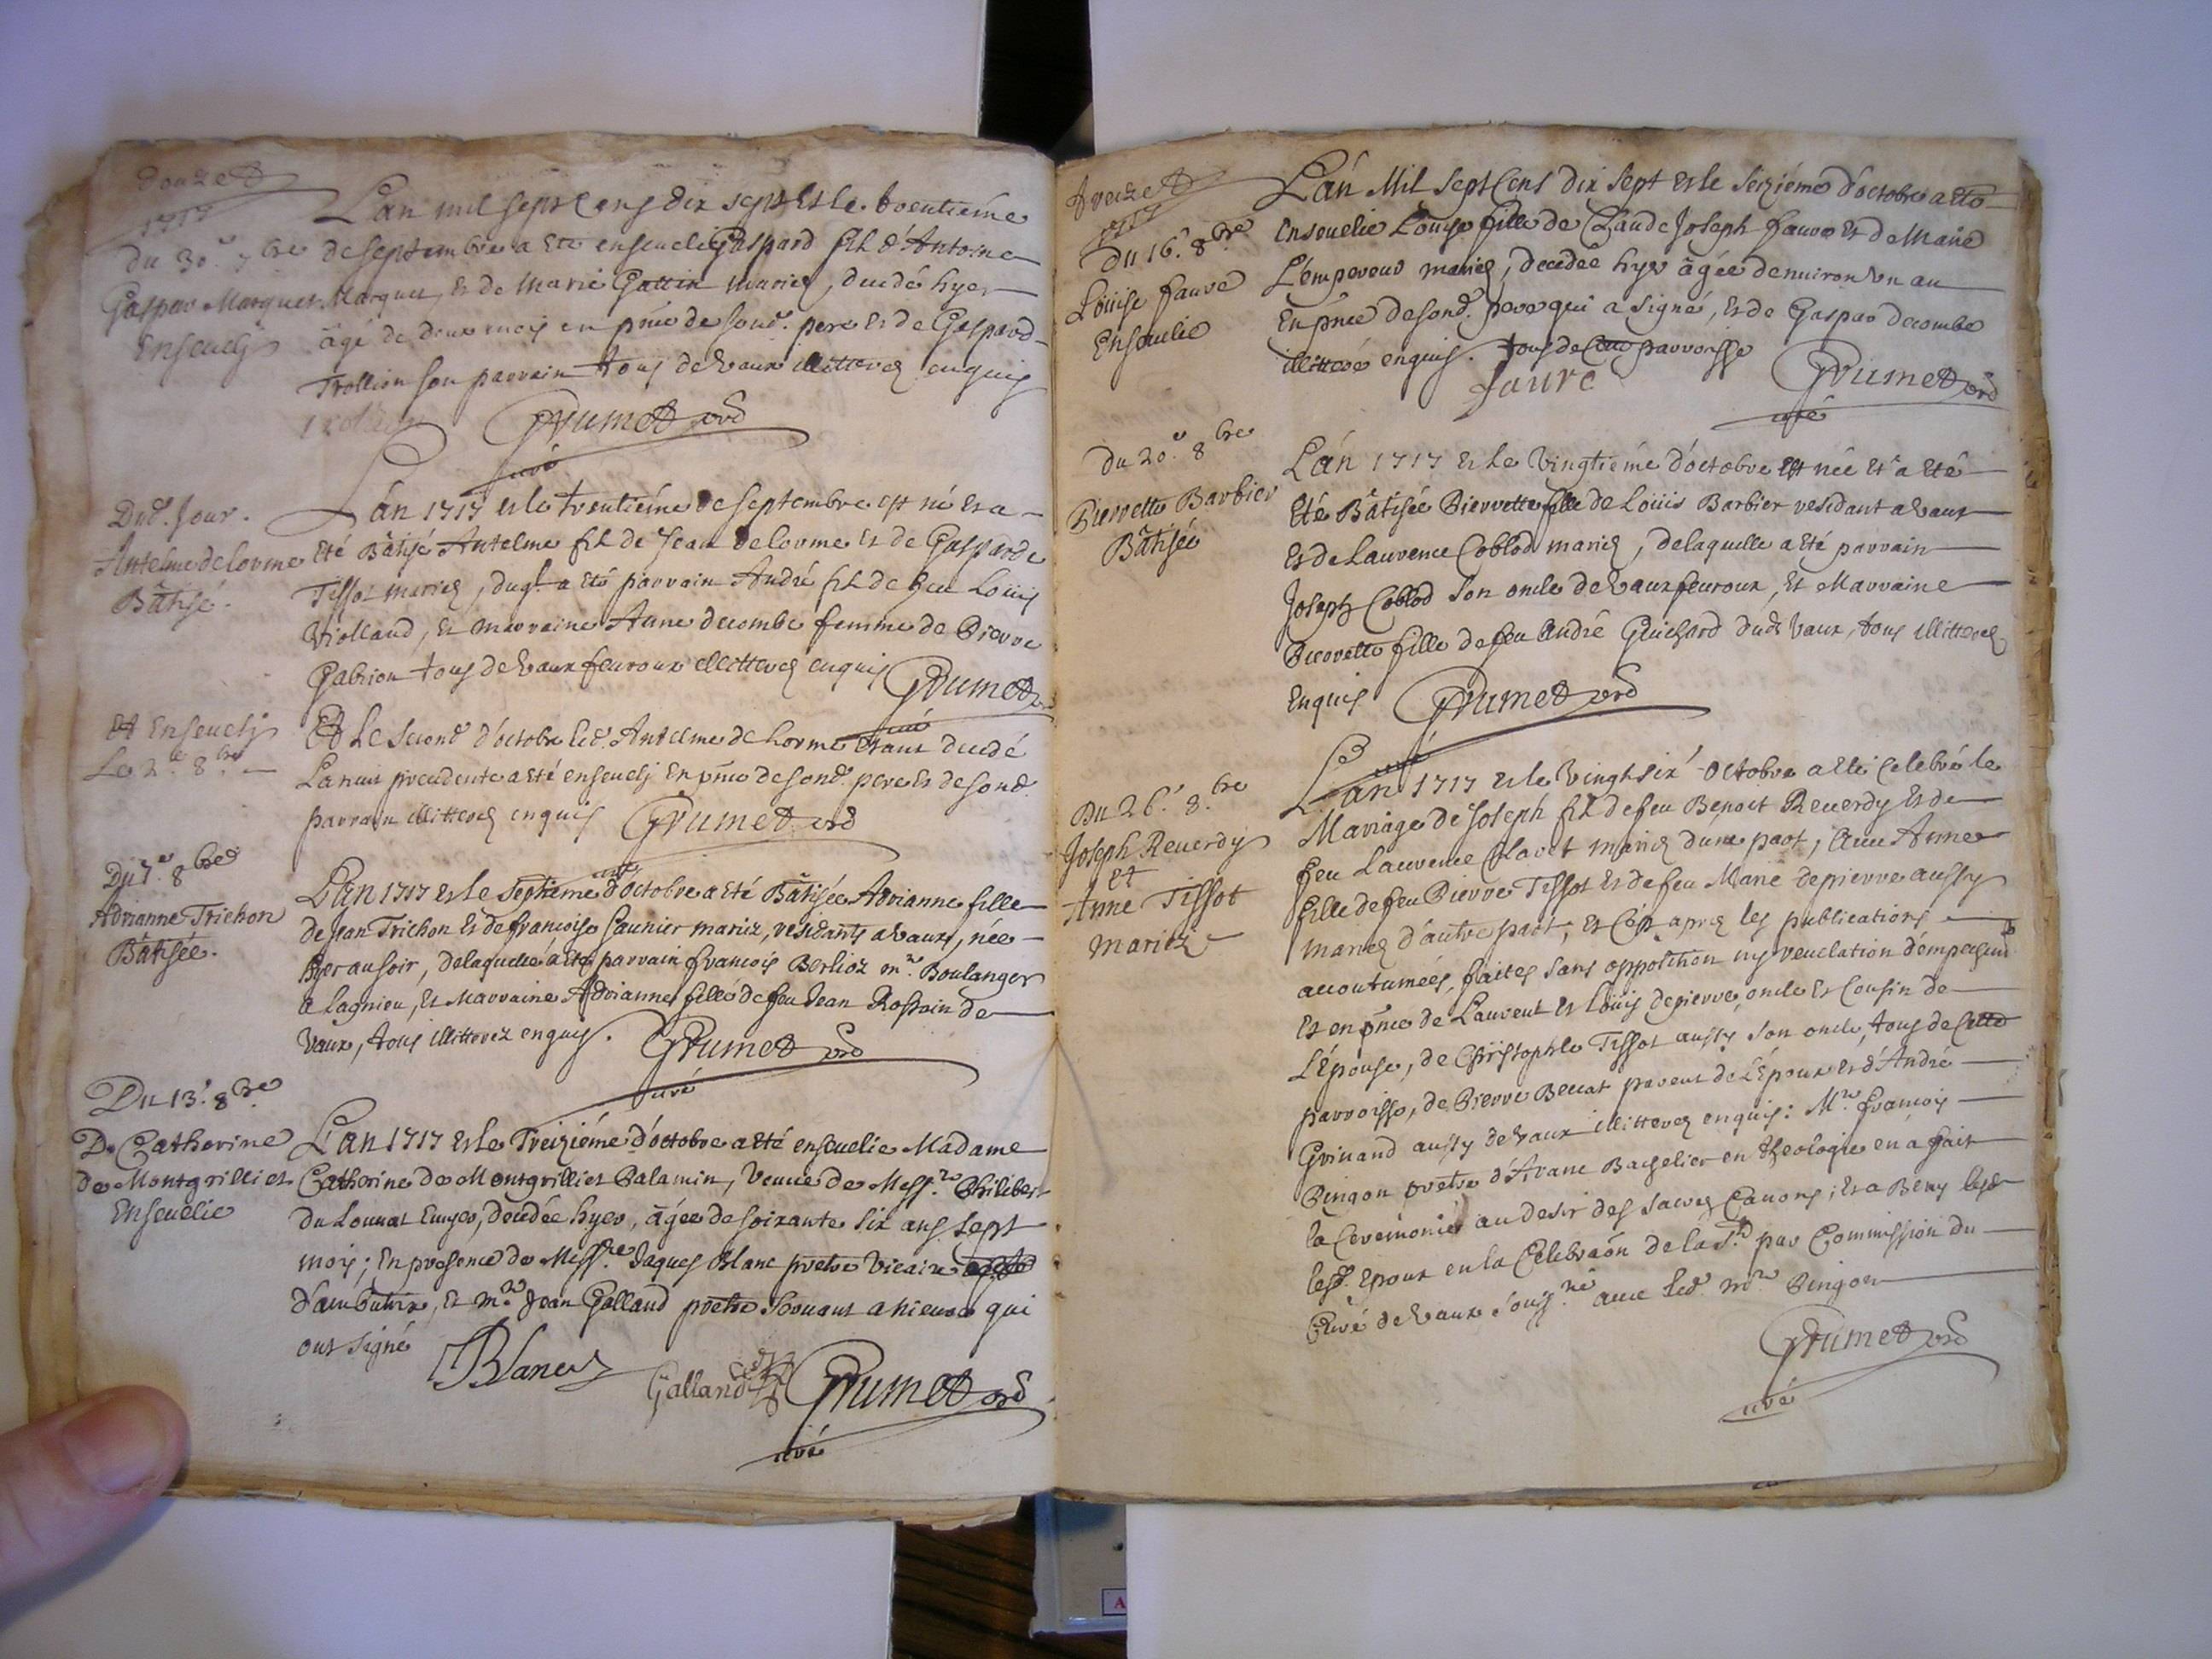 douze
1717
du 30e 7bre
Gaspar Marquet
Enseuely
L'an mil sept Cens dix sept et le trentiéme
de septembre a ete enseueli Gaspard fils d'Antoine
Marquet, et de Marie Gattin mariez, decedé hyer
âgé de deux mois en pñce de sond. pere et de Gaspard
Trollion son parrain tous de Vaux illitterez enquis
Grumet
curé
Dud. Jour.
Antelme de lorme
Bâtisé.
L'án 1717 et le trentiéme de septembre est né et a
Eté Bâtisé Antelme fils de Jean de lorme et de Gasparde
Tissot mariez, duql. a eté parrain André fils de feu Loüis
Violland, et marraine Anne decombe femme de Pierre
Gabrion tous de Vaux feuroux illitterez enquis
Grumet
curé
Et Enseuely
Le 2e 8bre
Et Le second d'octobre led. Antelme de Lorme etant decedé
La nuit precedente a eté enseuely En pñce de sond. pere et de sond.
parrain illitterez enquis Grumet
curé
Du 7e 8bre
Adrianne Trichon
Bâtisée.
L'an 1717 et le septiéme d'octobre a eté Bâtisée Adrianne fille
de Jean Trichon et de francoise Saunier mariez, residants a Vaux, née
hyer au soir, de laquelle a eté parrain francois Berlioz mre. Boulanger
a Lagnieu, et Marraine Adrianne fille de feu Jean Rostain de
Vaux, tous illitterez enquis. Grumet
curé
Du 13e 8bre
De Catherine
de Montgrilliet
Enseuelie
L'an 1717 et le Treiziéme d'octobre a eté enseuelie Madame
Catherine de Montgrilliet Palamin, Veuue de Messre. Philibert
du Louuat Ecuyer, decedée hyer, âgée de soixante six ans sept
mois; En presence de Messre. Jaques Blanc pretre Vicaire
d'ambutrix, et mre. Jean Galland pretre seruant a hieure qui
ont signé
Blanc Galland Grumet
curé
treize
1717
Du 16e 8bre
Loüise faure
Enseuelie
L'án Mil sept Cens dix sept et le seiziéme d'octobre a eté
Enseuelie Louise fille de Claude Joseph faure et de Marie
L'empereur mariez, decedée hyer âgée denuiron un an
En pñce de sond. pere qui a signé, et de Gaspar decombe
illitteré enquis. tous de parroisse
faure Grumet
curé
du 20e 8bre
Pierrette Barbier
Bâtisée
L'án 1717 et le Vingtiéme d'octobre est née et a eté
Eté Bâtisée Pierrette fille de Loüis Barbier residant a Vaux
et de Laurence Coblod mariez, de laquelle a eté parrain
Joseph Coblod son oncle de Vaux feuroux, et Marraine
Pierrette fille de feu André Guichard dud. Vaux, tous illitterez
Enquis Grumet
curé
Du 26e 8bre
Joseph Reuerdy
et
Anne Tissot
mariez
L'an 1717 et le Vingt six octobre a eté celebré le
Mariage de Joseph fils de feu Benoit Reuerdy et de
feu Laurence Clavet mariez d'une part, Auec Anne
fille de feu Pierre Tissot et de feu Marie depierre aussy
mariez d'autre part, et C'est aprez les publications
accoutumées, faites sans opposition ny reuelation d'empechemt.
Et en pñce de Laurent et Loüis depierre, oncle et Cousin de
L'épouse, de Christophle Tissot aussy son oncle, tous de cette
parroisse, de Pierre Beccat parent de L'époux et d'André
Grinand aussy de Vaux illitterez enquis: Mre. francois
Pingon pretre d'Arane Bachelier en theologie en a fait
la Ceremonie au desir des sacrez Canons; et a Beny lesd.
lesd. Epoux en la Celebraõn de la ste. par Commission du
Curé de Vaux soussné. auec led. mre. Pingon
Grumet
curé